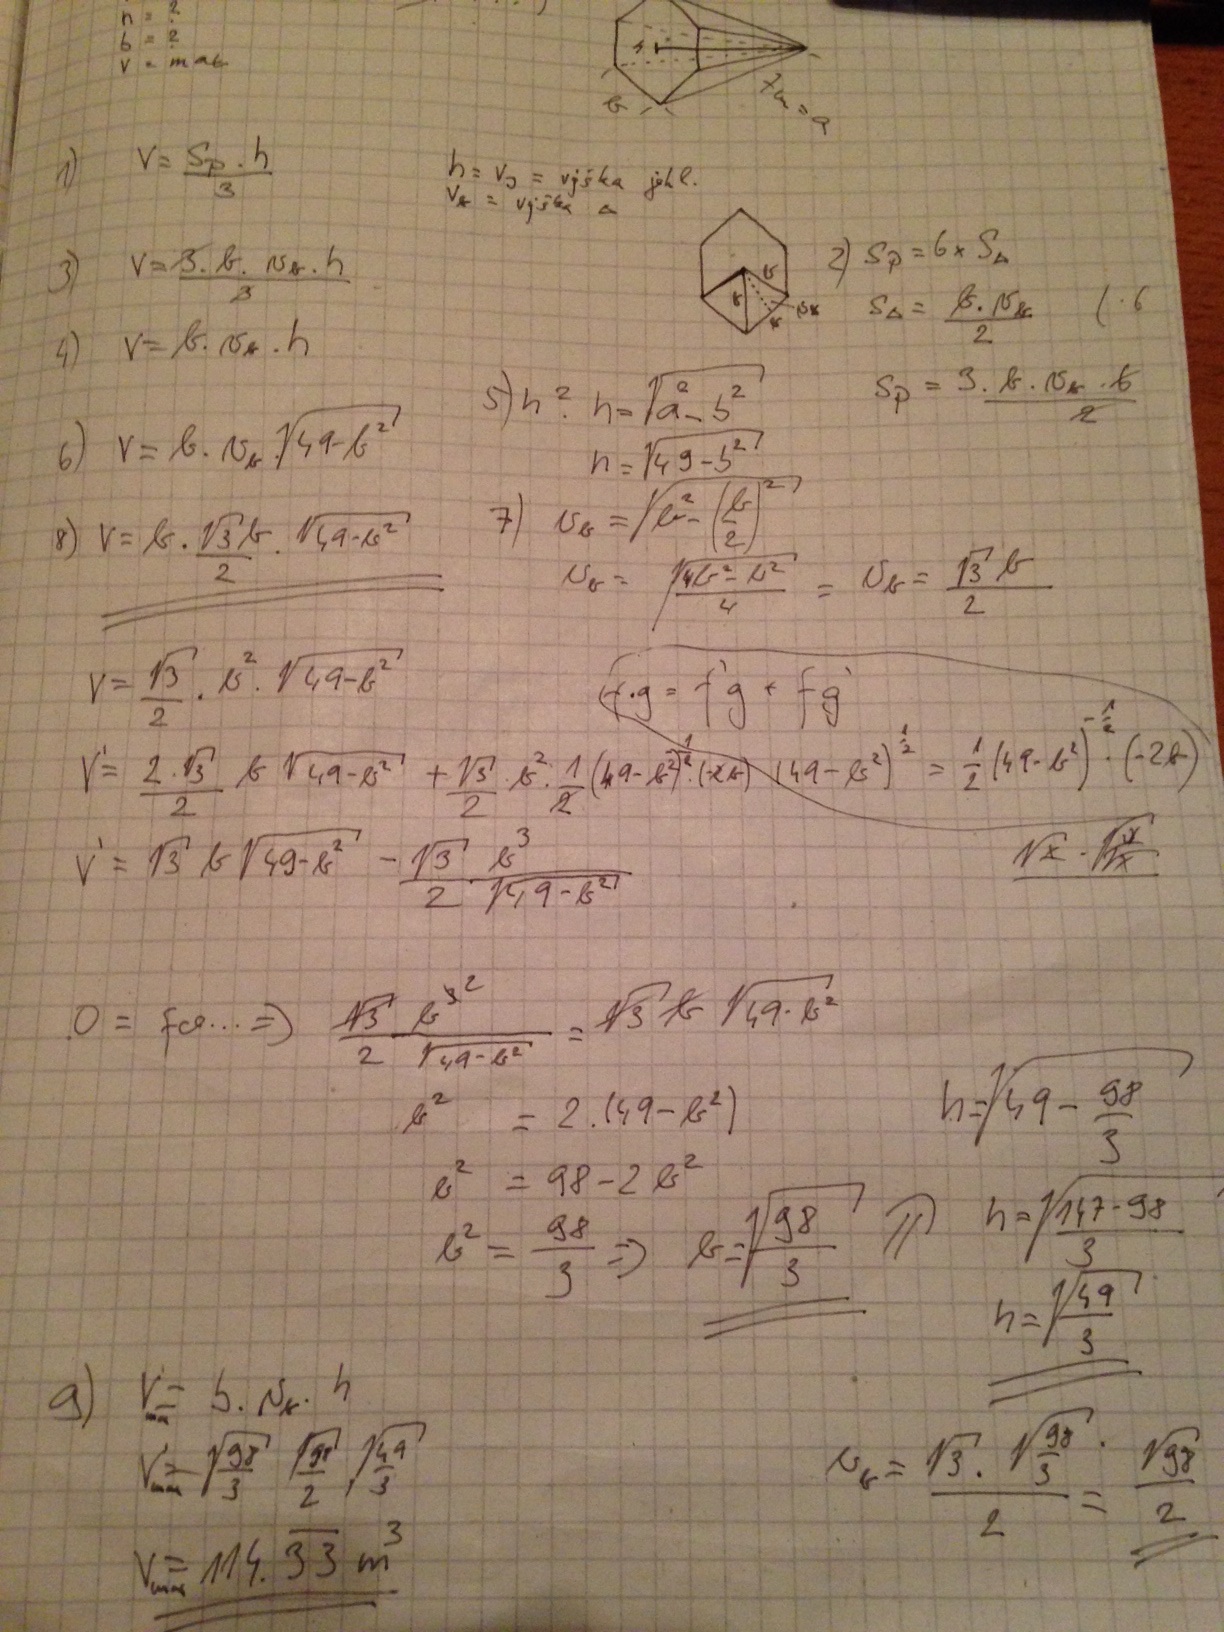 h = ?
b = ?
V = max
b
7m = a
1) V = Sp . h / 3
h = vj = výška jehl.
vb = výška △
2) Sp = 6 × S△
S△ = b . vb / 2 ( . 6
Sp = 3 . b . vb . 6 / 2
3) V = 3 . b . vb . h / 3
4) V = b . vb . h
5) h ? h = √(a² - b²)
h = √(49 - b²)
6) V = b . vb . √(49 - b²)
7) vb = √(b² - (b/2)²)
vb = √((4b² - b²)/4) = vb = √3 b / 2
8) V = b . √3 b / 2 . √(49 - b²)
V = √3/2 . b² . √(49 - b²)
f . g = f'g + fg'
V' = 2 . √3 / 2 b √(49 - b²) + √3/2 . b² . 1/2 (49 - b²)^½ . (-2b)
(49 - b²)^½ = 1/2 (49 - b²)^-½ . (-2b)
V' = √3 b √(49 - b²) - √3 b³ / 2 . √(49 - b²)
0 = fce... => √3 b³ ² / 2 √(49 - b²) = √3 b √(49 - b²)
b² = 2 . (49 - b²)
b² = 98 - 2b²
b² = 98/3 => b = √(98/3)
h = √(49 - 98/3)
h = √((147 - 98)/3)
h = √(49/3)
9) Vmax = b . vb . h
Vmax = √(98/3) √98/2 . √(49/3)
Vmax = 114.33 m³
vb = √3 . √(98/3) / 2 = √98 / 2